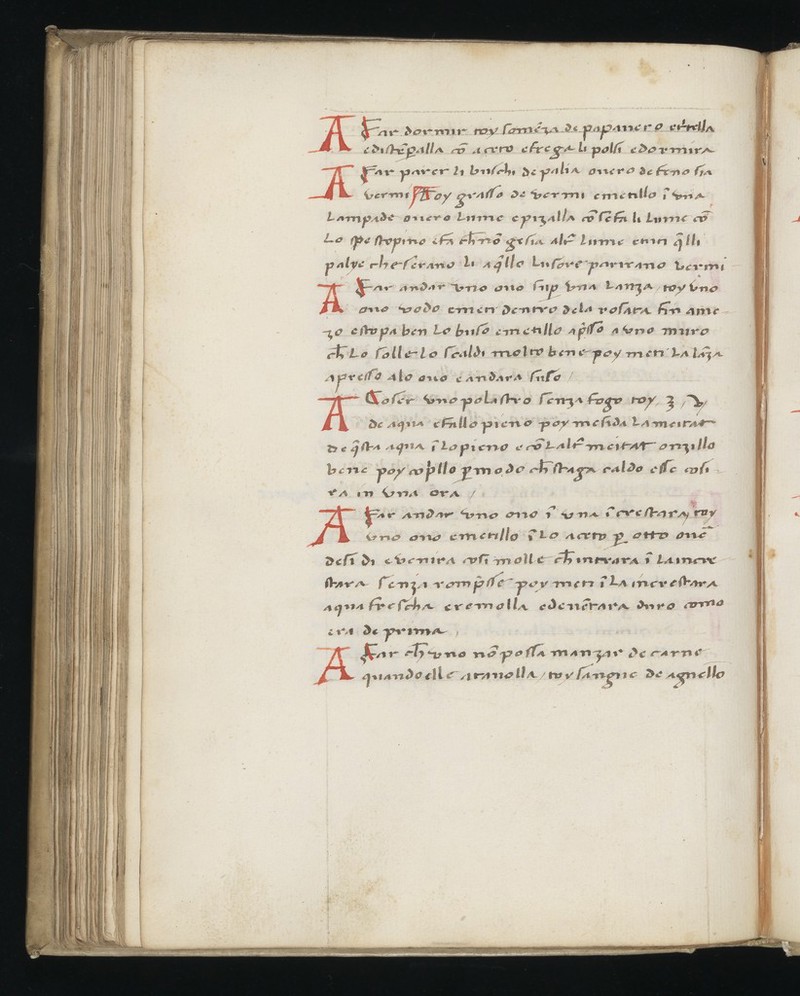 A Far dormir toy somēza de papauero et tella
e distēpalla cō aceto e frega li polsi e dormira
A Far parer li buschi de palia ouero de feno sia
vermi Toy grasso de vermi e metillo ī vna
Lampade ouero Lume e pizalla cō se fa li Lume cō
Lo stopino e fa ch̄ nō ge sia altr̄ Lume e meti q̄lli
palye che serano li a q̄llo Lusore parirano vermi
A Far andar vno ouo sup̄ vna Lanza toy vno
ouo vodo e meti dentro dela rosata fin a me
zo e stopa ben Lo buso e metillo ap̄sso a vno muro
ch̄ Lo solle Lo scaldi molto bene poy meti La lāza
apresso alo ouo e andara suso /
A Coser vno polastro senza fogo toy
de aqua e fallo pieno poy mesida La meitat
de q̄sta aqua ī lo pieno e cō Laltr̄ meitat onzillo
bene poy cop̄llo p̄ modo ch̄ staga caldo e se cosi
ra in vna ora /
A Far andar vno ouo ī vna īcrestara toy
vno ouo e metillo ī Lo aceto p̄ otto ouē
desi di e venira cosi molle ch̄ intrara ī La incre
stara senza romp̄sse poy meti ī La increstara
aqua frescha e remolla e deuētara duro como
era de prima /
A Far ch̄ vno nō possa manzar de carne
quando elle a tauolla / toy sangue de agnello